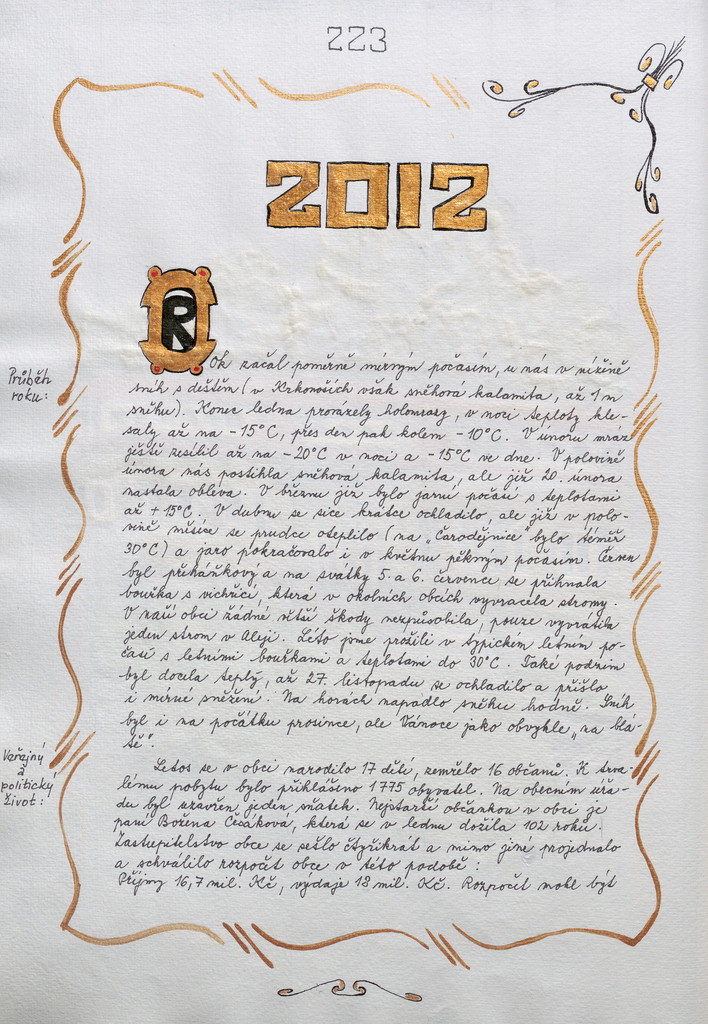 223
2012
Průběh
roku:
Rok začal poměrně mírným počasím, u nás v nížině
sníh s deštěm (v Krkonoších však sněhová kalamita, až 1 m
sněhu). Konec ledna provázely holomrazy, v noci teploty kle-
saly až na -15°C, přes den pak kolem -10°C. V únoru mráz
ještě zesílil až na -20°C v noci a -15°C ve dne. V polovině
února nás postihla sněhová kalamita, ale již 20. února
nastala obleva. V březnu již bylo jarní počasí s teplotami
až +15°C. V dubnu se sice krátce ochladilo, ale již v polo-
vině měsíce se prudce oteplilo (na „Čarodějnice" bylo téměř
30°C) a jaro pokračovalo i v květnu pěkným počasím. Červen
byl přeháňkový a na svátky 5. a 6. července se přihnala
bouřka s vichřicí, která v okolních obcích vyvracela stromy.
V naší obci žádné větší škody nezpůsobila, pouze vyvrátila
jeden strom v Aleji. Léto jsme prožili v typickém letním po-
časí s letními bouřkami a teplotami do 30°C. Také podzim
byl docela teplý, až 27. listopadu se ochladilo a přišlo
i mírné sněžení. Na horách napadlo sněhu hodně. Sníh
byl i na počátku prosince, ale Vánoce jako obvykle „na blá-
tě".
Veřejný
a
politický
život:
Letos se v obci narodilo 17 dětí, zemřelo 16 občanů. K trva-
lému pobytu bylo přihlášeno 1775 obyvatel. Na obecním úřa-
du byl uzavřen jeden sňatek. Nejstarší občankou v obci je
paní Božena Čečáková, která se v lednu dožila 102 roků.
Zastupitelstvo obce se sešlo čtyřikrát a mimo jiné projednalo
a schválilo rozpočet obce v této podobě:
Příjmy 16,7 mil. Kč, výdaje 18 mil. Kč. Rozpočet mohl být